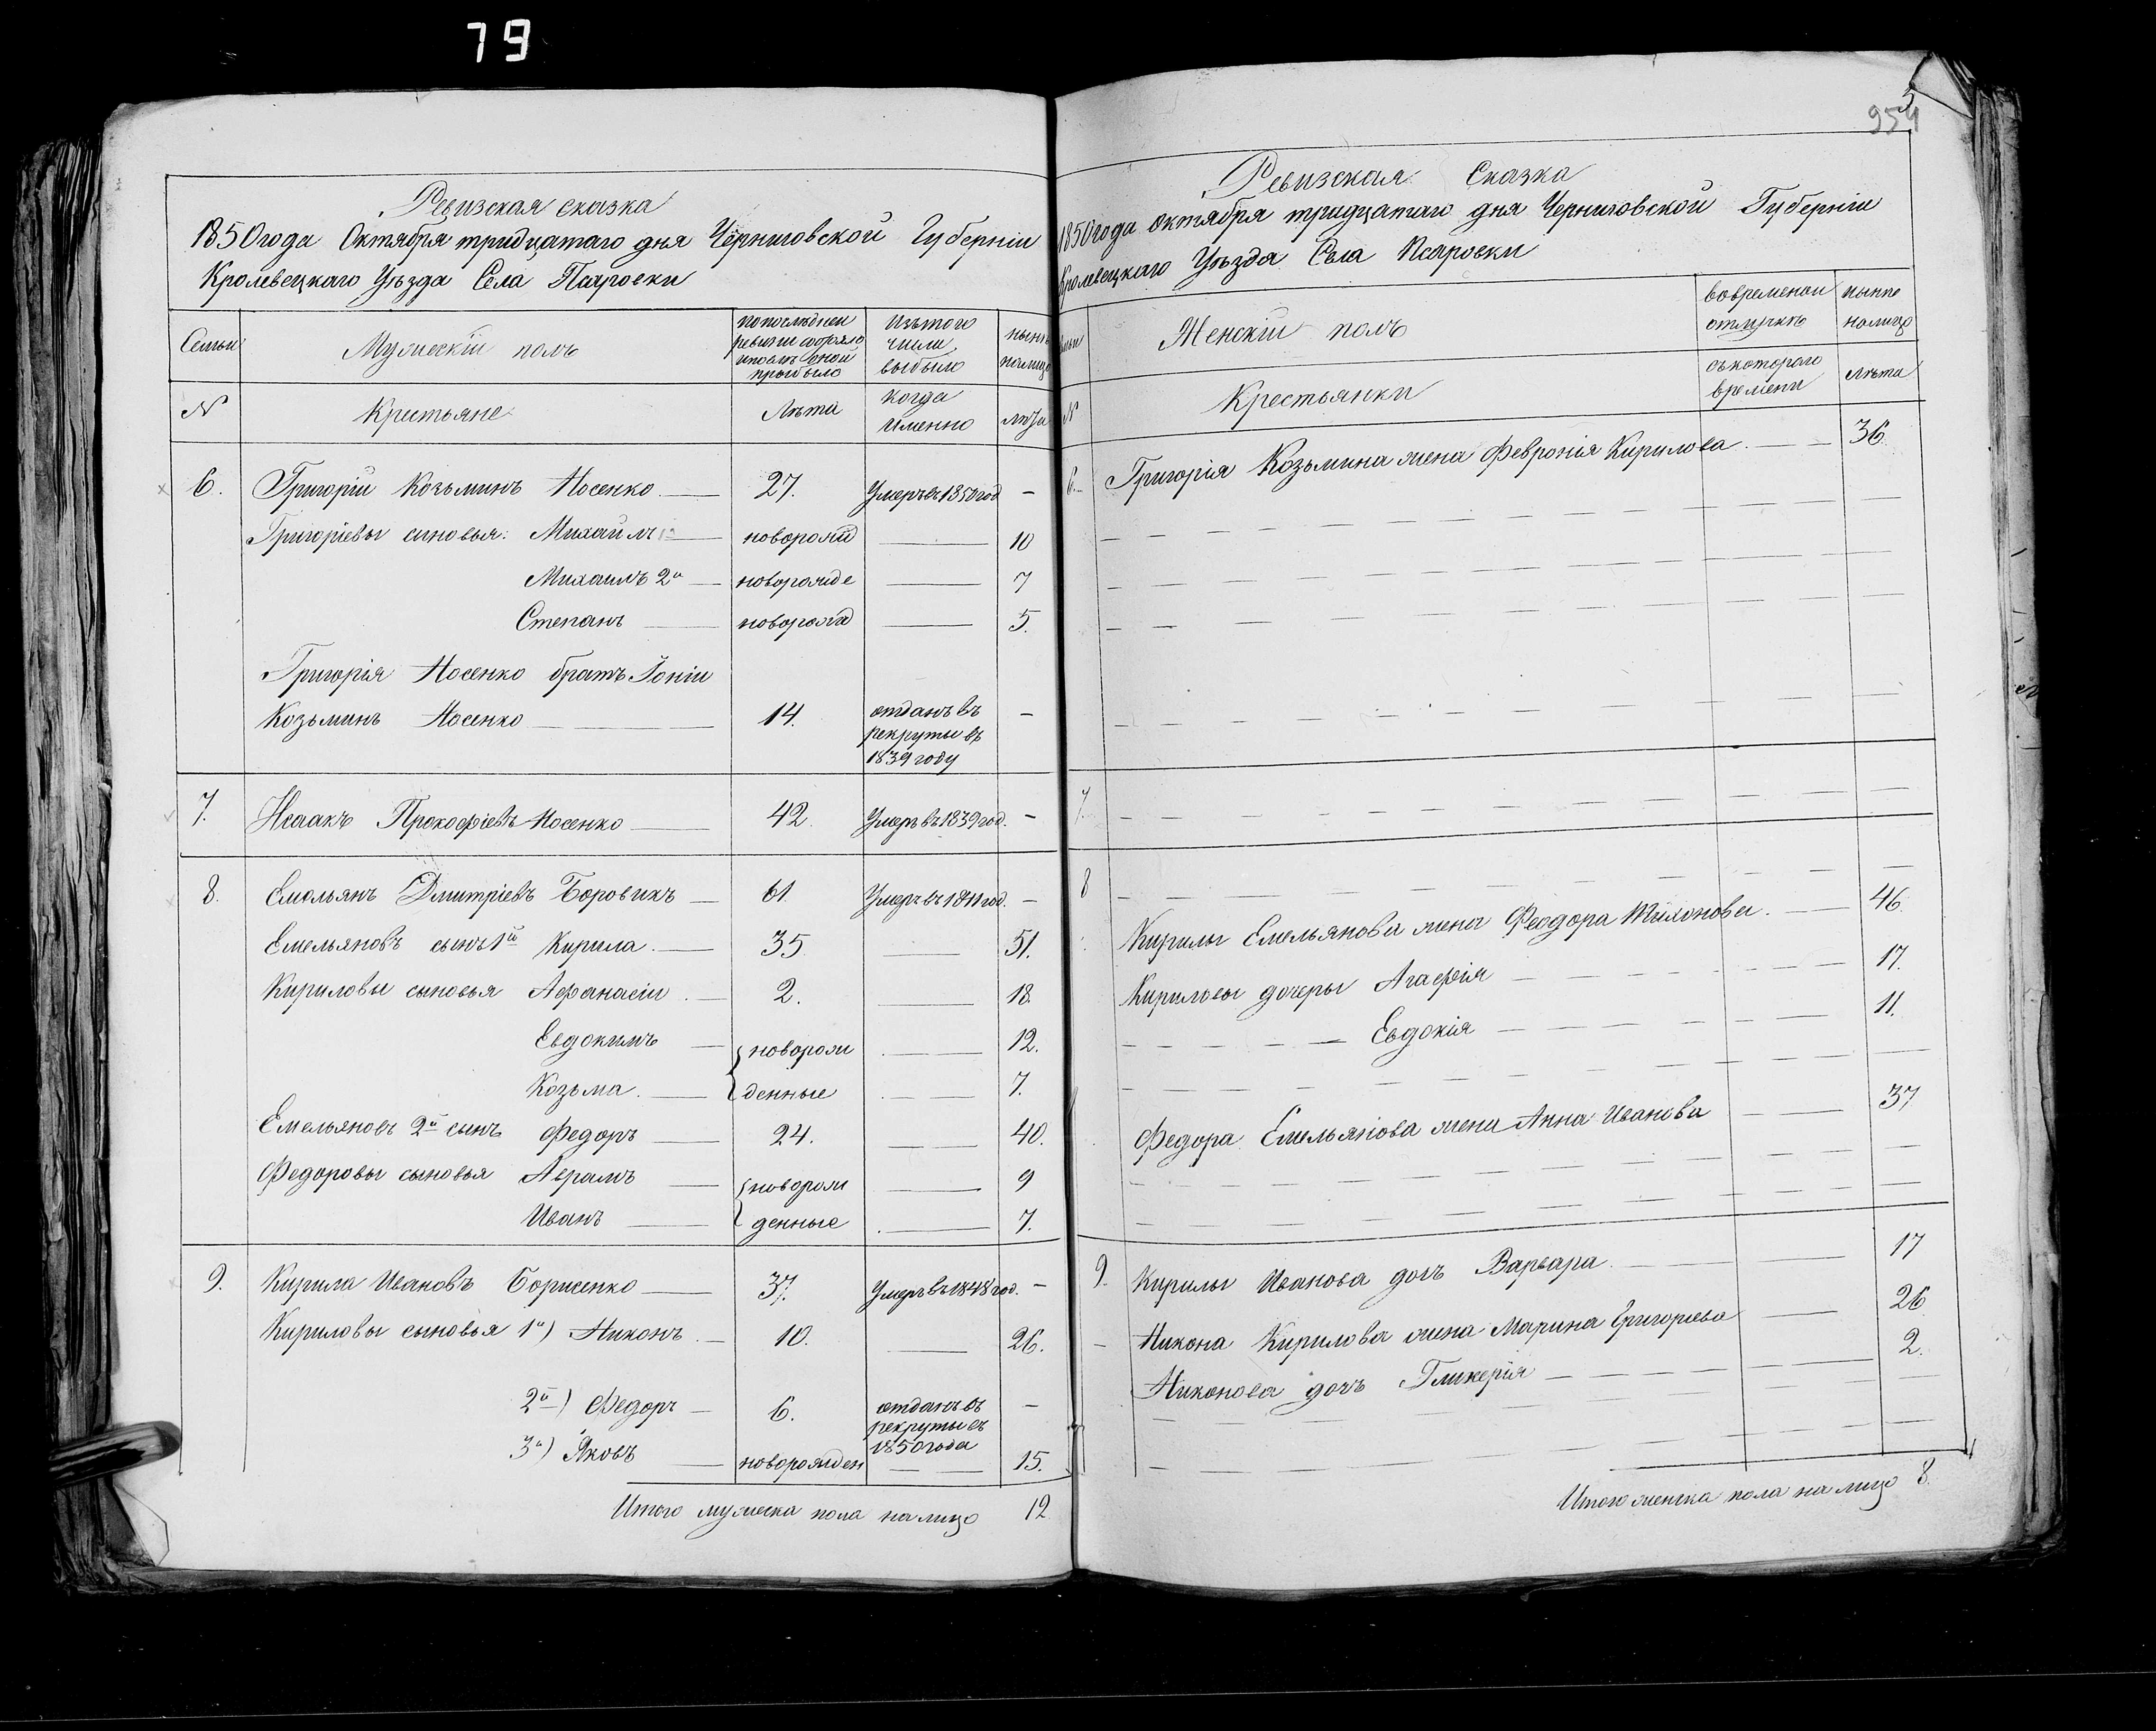 79
Ревизская сказка
1850 года Октября тридцатаго дня Черниговской Губерніи
Кролевецкаго Уѣзда Села Псаровки
Семьи
Мужескій полъ
по последней
ревизіи состояло
и послѣ оной
прибыло
Изътого
числа
выбыло
нынѣ
налицо
N
Крестьяне
Лѣта
когда
именно
лѣта
6. Григорій Козьминъ Носенко 27. Умеръ въ 1850 год -
Григоріевы синовья: Михаилъ новорожд 10
Михаилъ 2й новорожде 7
Степанъ новорожд 5.
Григорія Носенко братъ Іоніи
Козьминъ Носенко 14. отданъ въ -
рекруты въ
1839 году
7. Исаакъ Прокофіевъ Носенко 42 Умеръ въ 1839 год. -
8. Емельянъ Дмитріевъ Боровикъ 61. Умеръ въ 1841 год. -
Емельяновъ сынъ 1й Кирила 35 51.
Кириловы сыновья Афанасіи 2. 18
Евдокимъ новорож 12.
Козьма денные 7.
Емельяновъ 2й сынъ Федоръ 24. 40.
Федоровы сыновья Аврамъ новорож 9
Иванъ денные 7.
9. Кирила Ивановъ Борисенко 37. Умеръ въ 1848 год. -
Кириловы сыновья 1й) Никонъ 10. 26.
2й) Федоръ 6. отданъ въ -
рекруты въ
1850 года
3й) Яковъ новорожден 15.
Итого мужеска пола налицо 12
3
954
Ревизская Сказка
1850 года октября тридцатаго дня Черниговской Губерніи
Кролевецкаго Уѣзда Села Псаровки
Семьи
Женскій полъ
вовременой
отлучкѣ
нынѣ
налицо
N
Крестьянки
съкотораго
времени
лѣта
6. Григорія Козьмина жена Февронія Кирилова 36
7.
8
Кирилы Емельянова жена Феодора Тихонова 46
Кириловы дочеры Агафія 17.
Евдокія 11.
Федора Емельянова жена Анна Иванова 37
9. Кирилы Иванова дочь Варвара 17
Никона Кирилова жена Марина Григорьева 26
Никонова дочь Гликерія 2.
Итого женска пола на лицо 8.